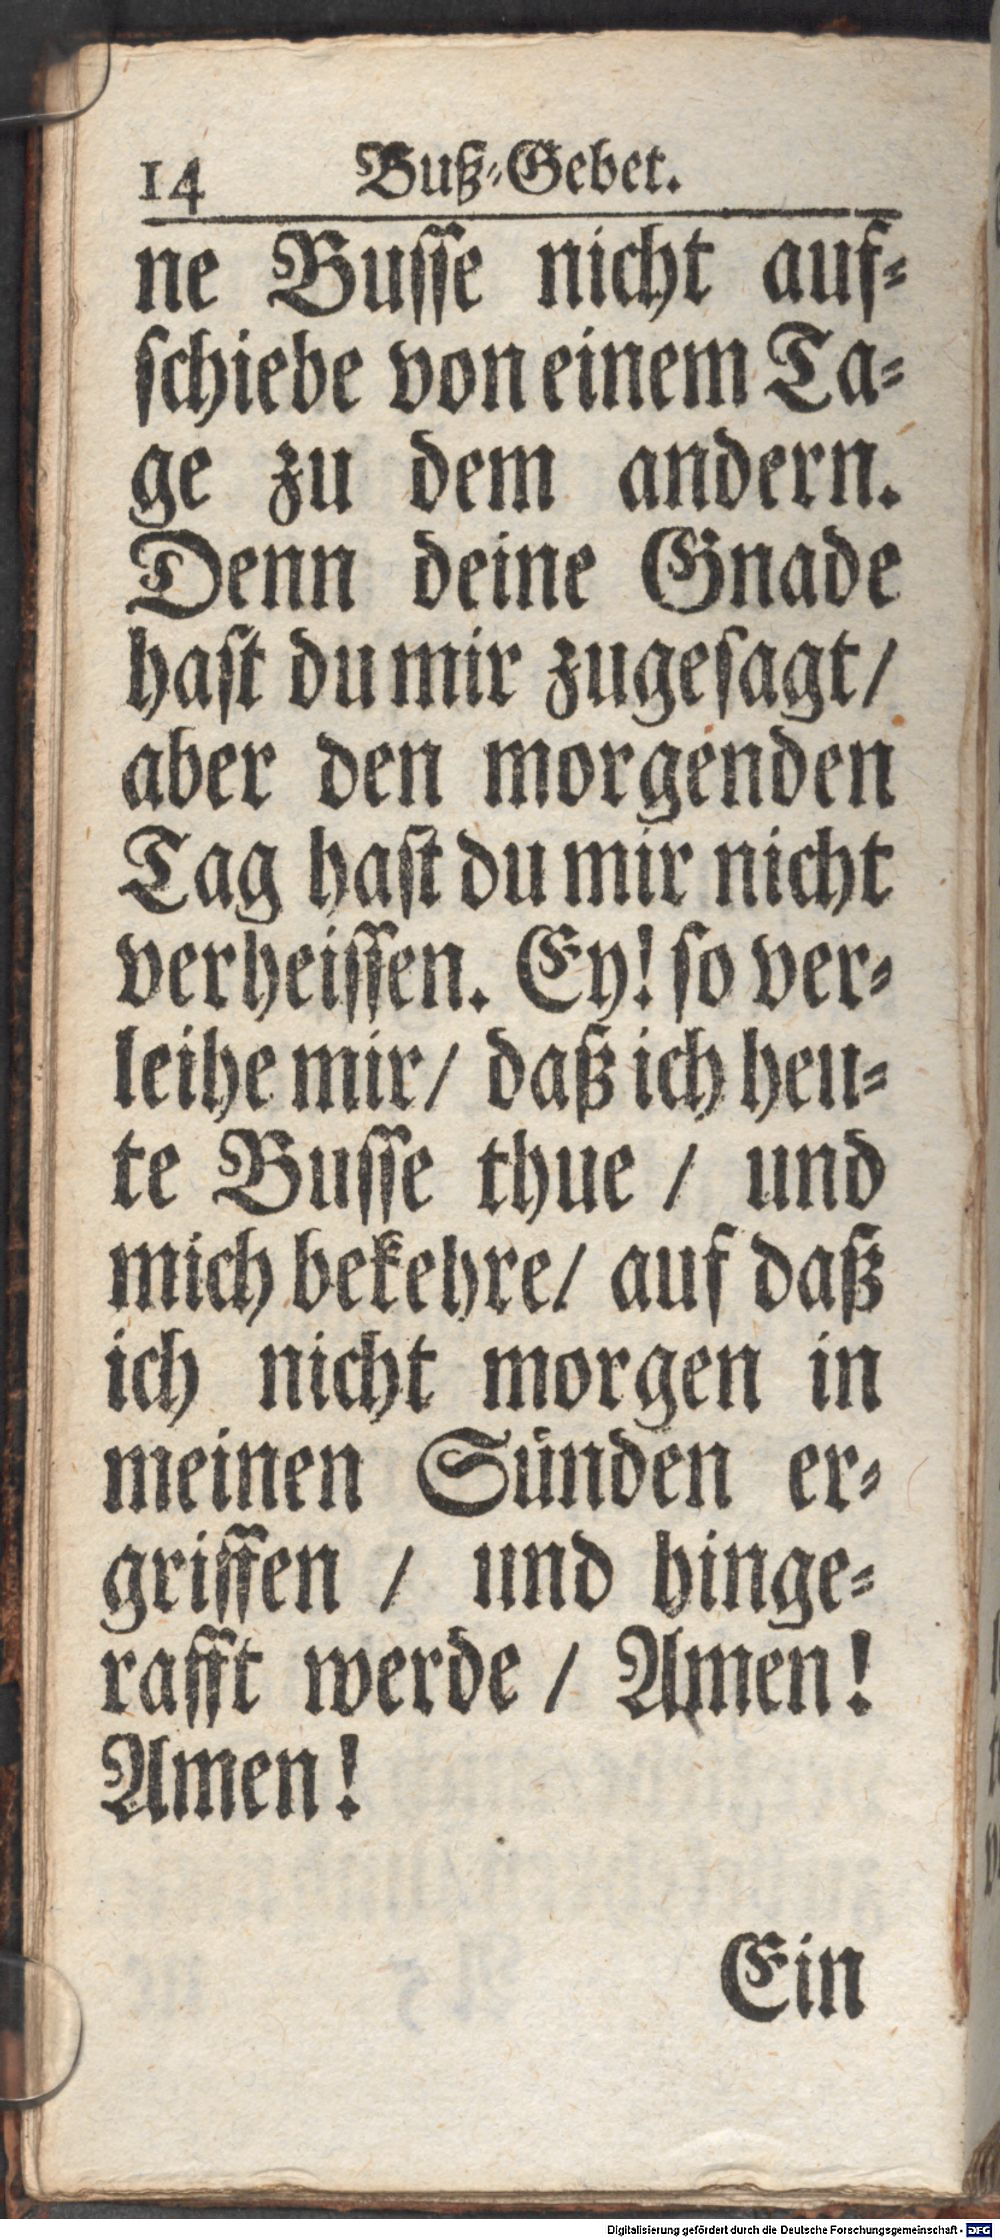 14 Buß-Gebet.
ne Busse nicht auf-
schiebe von einem Ta-
ge zu dem andern.
Denn deine Gnade
hast du mir zugesagt/
aber den morgenden
Tag hast du mir nicht
verheissen. Ey! so ver-
leihe mir/ daß ich heu-
te Busse thue / und
mich bekehre/ auf daß
ich nicht morgen in
meinen Sünden er-
griffen / und hinge-
rafft werde / Amen!
Amen!
Ein
Digitalisierung gefördert durch die Deutsche Forschungsgemeinschaft - DFG